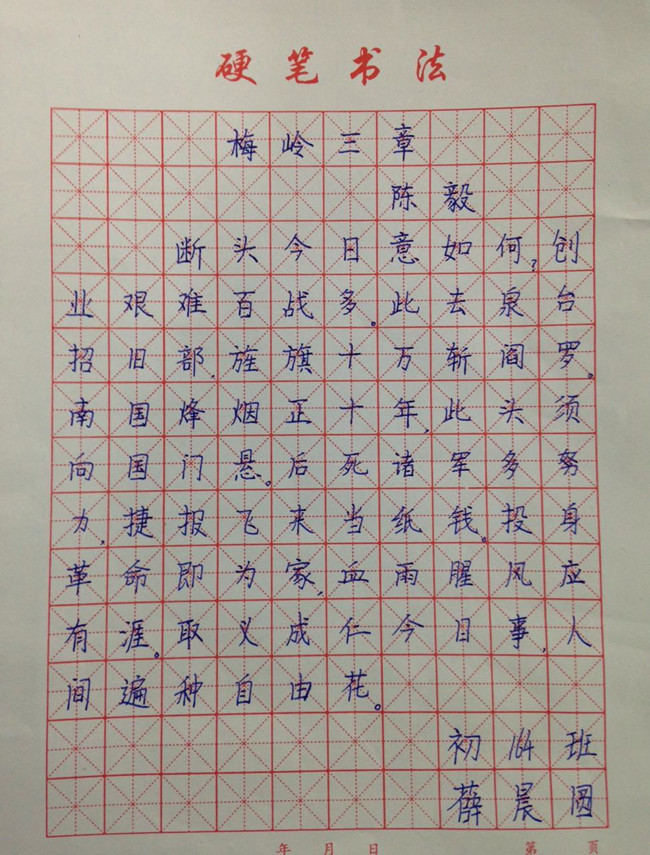 硬笔书法
梅岭三章
陈毅
断头今日意如何?创
业艰难百战多。此去泉台
招旧部,旌旗十万斩阎罗。
南国烽烟正十年,此头须
向国门悬。后死诸军多努
力,捷报飞来当纸钱。投身
革命即为家,血雨腥风应
有涯。取义成仁今日事,人
间遍种自由花。
初164班
薛晨圆
年 月 日 第 頁